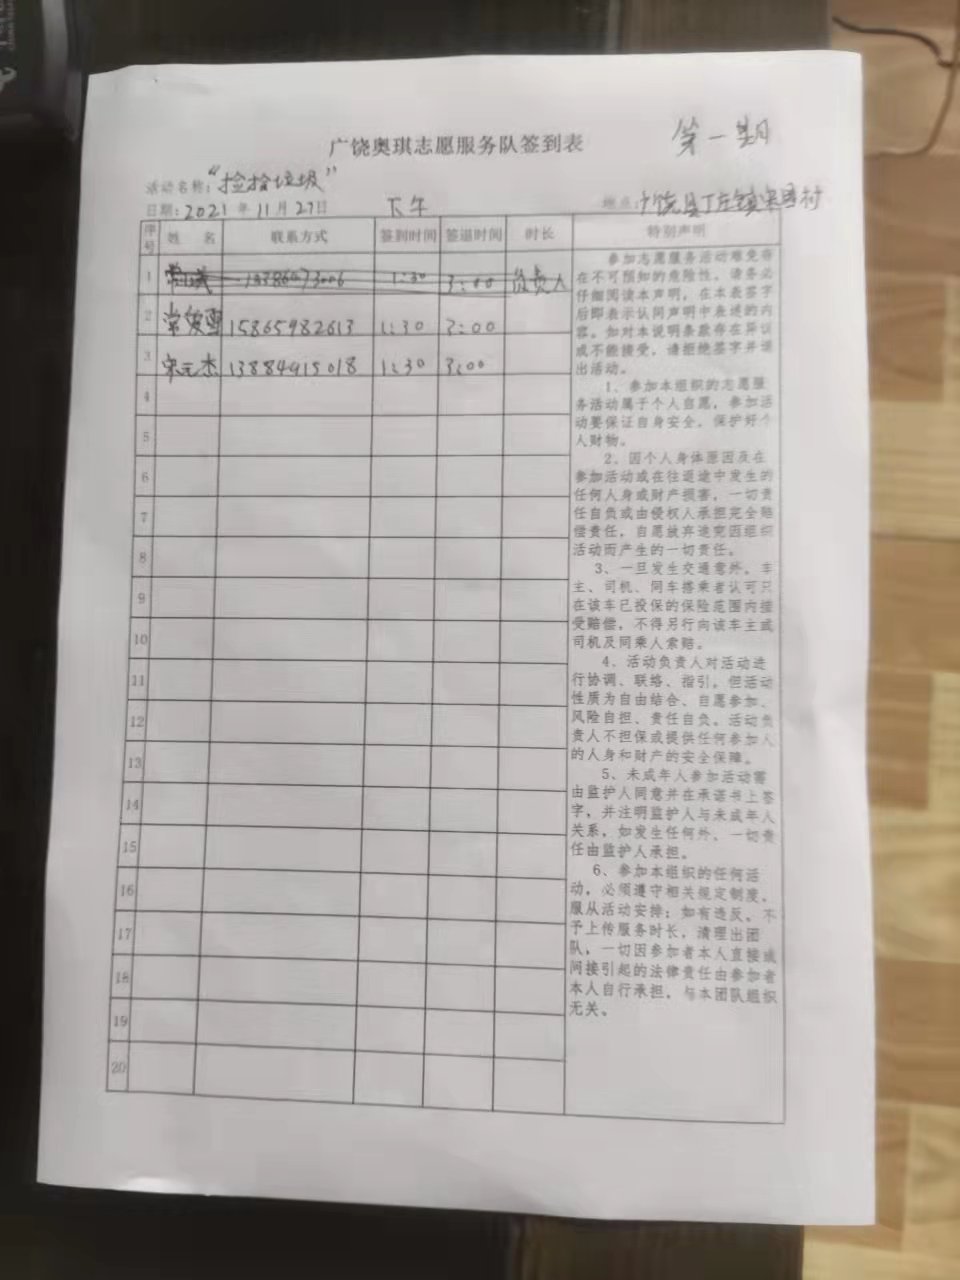 第一期
广饶奥琪志愿服务队签到表
活动名称:“捡拾垃圾”
日期:2021年11月27日 下午 地点:广饶县丁庄镇村
序号 姓 名 联系方式 签到时间 签退时间 时长 特别声明
1 1:30 3:00 负责人
2 常俊 15865982613 1:30 3:00
3 宋元杰 13884915018 1:30 3:00
4
5
6
7
8
9
10
11
12
13
14
15
16
17
18
19
20
参加志愿服务活动难免存
在不可预知的危险性，请务必
仔细阅读本声明，在本表签字
后即表示认同声明中表述的内
容。如对本说明条款存在异议
或不能接受，请拒绝签字并退
出活动。
1、参加本组织的志愿服
务活动属于个人自愿，参加活
动要保证自身安全，保护好个
人财物。
2、因个人身体原因及在
参加活动或在往返途中发生的
任何人身或财产损害，一切责
任自负或由侵权人承担完全赔
偿责任，自愿放弃追究因组织
活动而产生的一切责任。
3、一旦发生交通意外，车
主、司机、同车搭乘者认可只
在该车已投保的保险范围内接
受赔偿，不得另行向该车主或
司机及同乘人索赔。
4、活动负责人对活动进
行协调、联络、指引，但活动
性质为自由结合、自愿参加、
风险自担、责任自负。活动负
责人不担保或提供任何参加人
的人身和财产的安全保障。
5、未成年人参加活动需
由监护人同意并在承诺书上签
字，并注明监护人与未成年人
关系，如发生任何外、一切责
任由监护人承担。
6、参加本组织的任何活
动，必须遵守相关规定制度，
服从活动安排；如有违反，不
予上传服务时长，清理出团
队，一切因参加者本人直接或
间接引起的法律责任由参加者
本人自行承担，与本团队组织
无关。